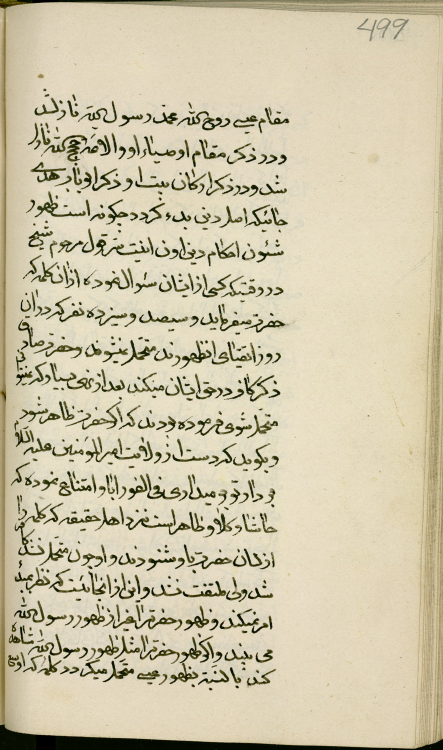 499
مقام عیسی روح الله محمد رسول الله نازل شد
و در ذکر مقام اوصیاء او و الائمة حجج الله نازل
شد و در ذکر ارکان بیت او ذکر ابواب هدی
جائیکه اصل دین بدء کردد چکونه است ظهور
شئون احکام دین اون اینست سر قول مرحوم شیخ
در وقتیکه کسی از ایشان سئوال نموده از ان کلمه که
حضرت میفرماید و سیصد و سیزده نفر که در ان
روز اتقیای ان ظهورند متحمل نمیشوند و حضرت صادق
ذکر کفر در حق ایشان میکند بعد از نهی بسیار که نمیتوانی
متحمل شوی فرموده بودند که اکر حضرت ظاهر شود
و بکوید که دست از ولایت امیر المومنین علیه السلام
بردار تو بر میداری فی الفور ابا و امتناع نموده که
حاشا و کلا و ظاهر است نزد اهل حقیقه که کلمه را
از لسان حضرت باو شنودند و او چون متحمل نشد کافر
شد ولی ملتفت نشد و این از انجائیست که نظر بمبدء
امر نمیکند و ظهور حضرت را غیر از ظهور رسول الله
می بیند و اکر ظهور حضرت را مثل ظهور رسول الله مشاهده
کند بالنسبة بظهور عیسی متحمل میکردد کلمه که اوسع